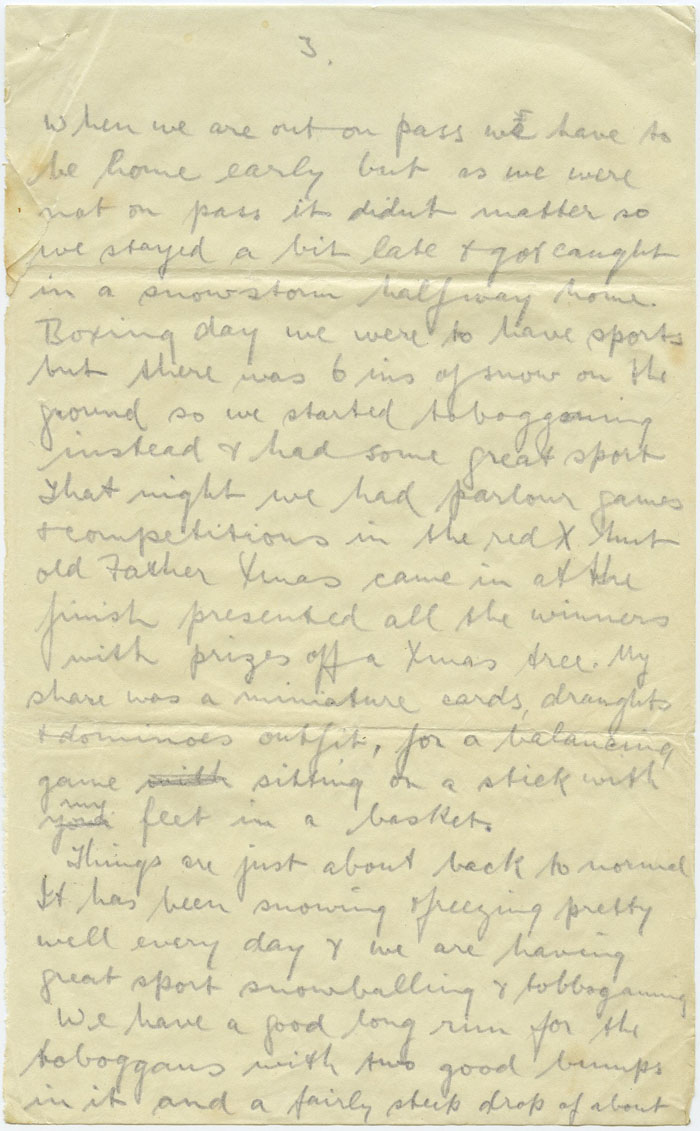 3.
When we are out on pass we have to
be home early but as we were
not on pass it didnt matter so
we stayed a bit late & got caught
in a snowstorm halfway home.
Boxing day we were to have sports
but there was 6 ins of snow on the
ground so we started tobogganing
instead & had some great sport
That night we had parlour games
& competitions in the red X hut
old Father Xmas came in at the
finish presented all the winners
with prizes off a Xmas tree. My
share was a miniature cards, draughts
& dominoes outfit, for a balancing
game with sitting on a stick with
my feet in a basket.
Things are just about back to normal
It has been snowing & freezing pretty
well every day & we are having
great sport snowballing & tobboganing
We have a good long run for the
toboggans with two good bumps
in it and a fairly steep drop of about